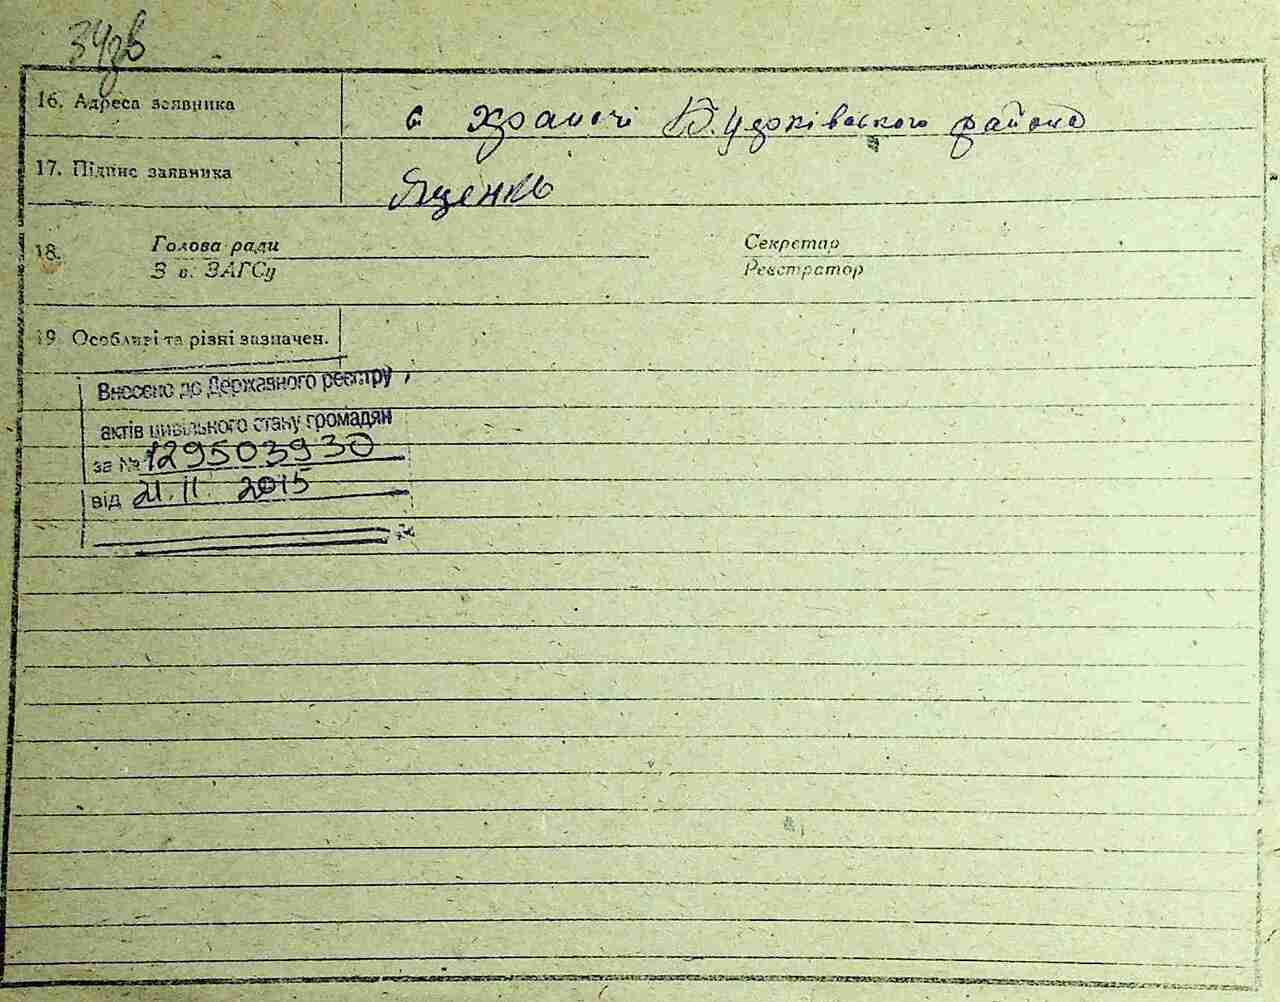 34зв
16. Адреса заявника
с Храпачі Б.Церківського района
17. Підпис заявника
Яценко
18. Голова ради
Зав. ЗАГСу
Секретар
Реєстратор
19 Особливі та різні зазначен.
Внесено до Державного реєстру
актів цивільного стану громадян
за № 129503930
від 21.11. 2015